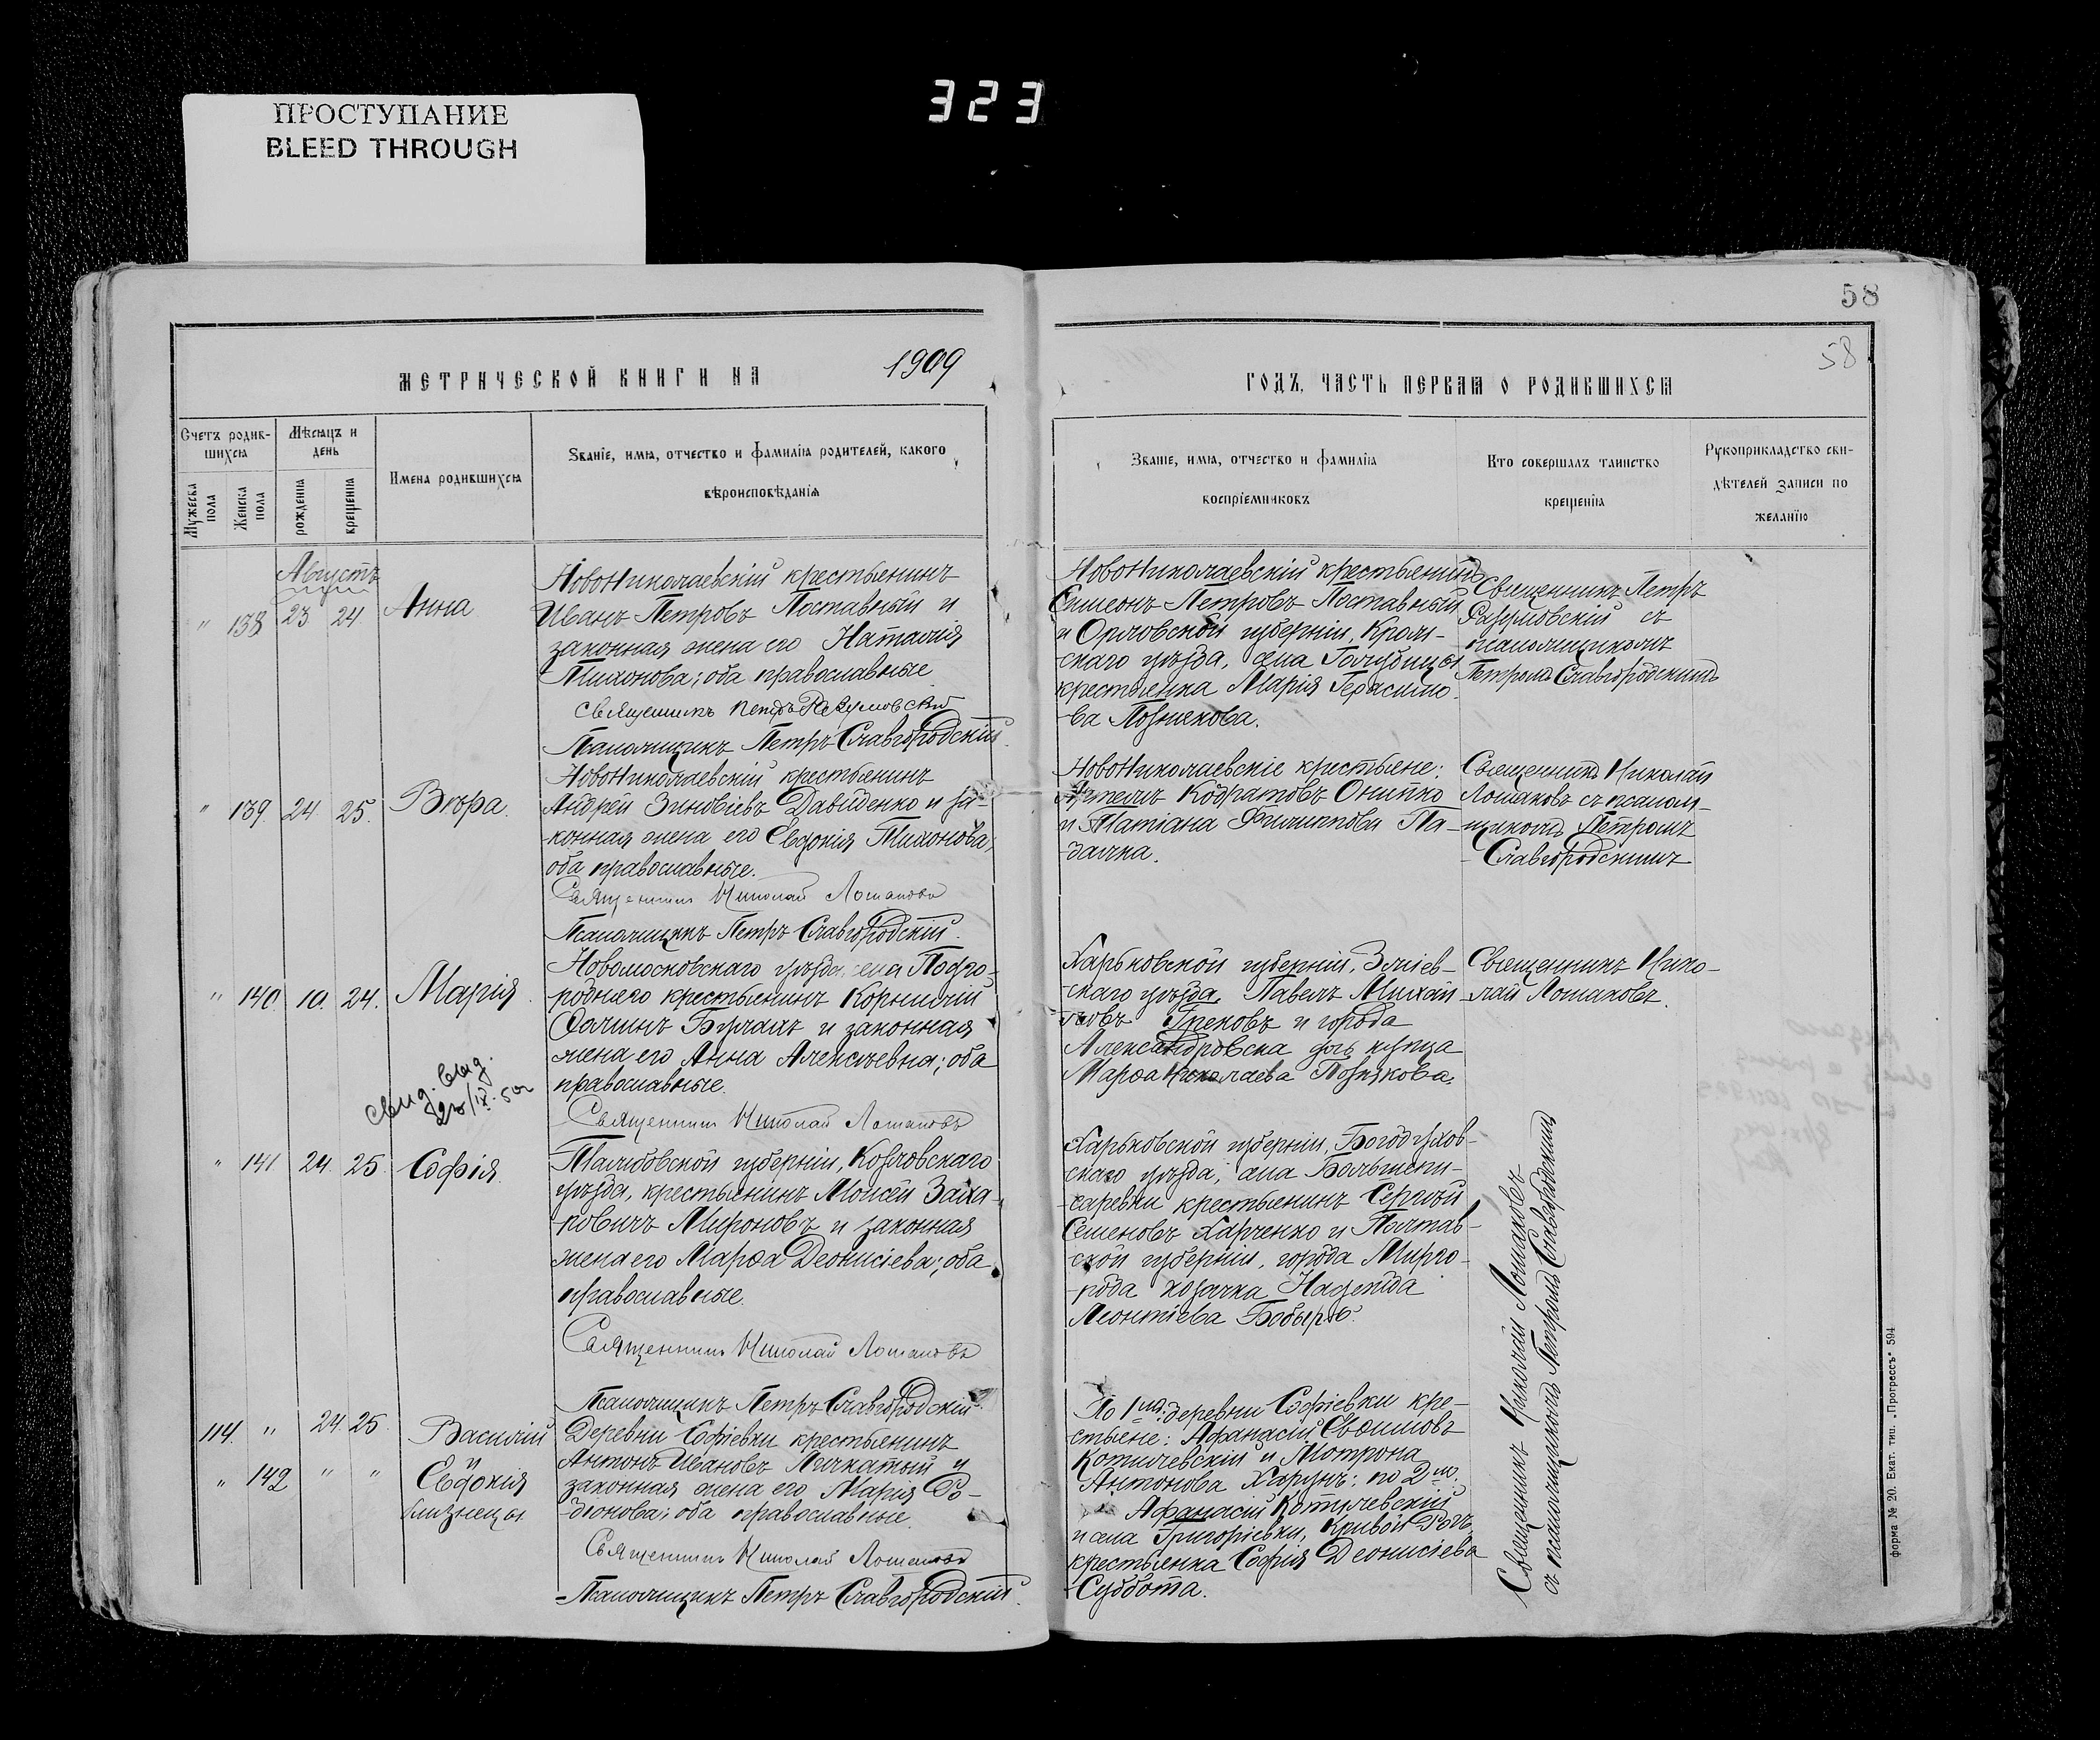 323
ПРОСТУПАНИЕ
BLEED THROUGH
58
58
МЕТРИЧЕСКОЙ КНИГИ НА 1909
Счетъ родив-
шихся
Мѣсяцъ и
день
Мужеска
пола
Женска
пола
рожденія
крещенія
Имена родившихся
Званіе, имя, отчество и фамилія родителей, какого
вѣроисповѣданія
Августъ
" 138 23 24 Анна
НовоНиколаевскій крестьянинъ
Иванъ Петровъ Поставный и
законная жена его Наталія
Тихонова; оба православные
Священникъ Петръ Разумовскій
Псаломщикъ Петръ Славгородскій.
" 139. 24 25. Вѣра.
НовоНиколаевскій крестьянинъ
Андрей Зиновіевъ Давиденко и за-
-конная жена его Евдокія Тихонова;
оба православные.
Священникъ Николай Лошаковъ
Псаломщикъ Петръ Славгородскій.
" 140. 10. 24. Марія.
Новомосковскаго уѣзда, села Подго-
роднего крестьянинъ Корнилій
Фоминъ Булахъ и законная
жена его Анна Алексѣевна; оба
православные.
Священникъ Николай Лошаковъ
свид. выд.
" 141 24. 25. Софія.
Тамбовской губерніи, Козловскаго
уѣзда, крестьянинъ Моисей Заха-
-ровичъ Мироновъ и законная
жена его Марѳа Деонисіева; оба
православные.
Священникъ Николай Лошаковъ
Псаломщикъ Петръ Славгородскій.
114. " 24. 25. Василій
и
" 142 " " Евдокія
близнецы.
Деревни Софіевки крестьянинъ
Антонъ Ивановъ и
законная жена его Марія Ро-
-діонова; оба православные.
Священникъ Николай Лошаковъ
-Псаломщикъ Петръ Славгородскій.
ГОДЪ, ЧАСТЬ ПЕРВАЯ О РОДИВШИХСЯ
Званіе, имя, отчество и фамилія
воспріемниковъ
Кто совершалъ таинство
крещенія
Рукоприкладство сви-
дѣтелей записи по
желанію
НовоНиколаевскій крестьянинъ
Симеонъ Петровъ Поставный
и Орловской губерніи, Кром-
скаго уѣзда, села Голубицы
крестьянка Марія Герасимо-
-ва Познякова.
Священникъ Петръ
Разумовскій съ
псаломщикомъ
Петромъ Славгородскимъ
НовоНиколаевскіе крестьяне:
Артемъ Кодратовъ Онипко
и Татіана Филиппова Па-
-далка.
Священникъ Николай
Лошаковъ съ псалом-
щикомъ Петромъ
-Славгородскимъ
Харьковской губерніи, Зміев-
-скаго уѣзда, Павелъ Михай-
ловъ Грековъ и города
Александровска дочь купца
Марѳа Николаева Познякова.
Священникъ Нико-
-лай Лошаковъ.
Харьковской губерніи, Богодухов-
скаго уѣзда, села Большепи-
-саревки крестьянинъ Сергѣй
Семеновъ Харченко и Полтав-
ской губерніи, города Мирго-
-рода козачка Надежда
Леонтіева Бобырь.
По 1му: деревни Софіевки кре-
стьяне: Афанасій
и Мотрона
Антонова Харунъ: по 2му.
Афанасій
и села Григоріевки, Кривой Рогъ,
крестьянка Софія Деонисіева
-Суббота.
Священникъ Николай Лошаковъ
съ псаломщикомъ Петромъ Славгородскимъ
форма № 20. Екат. тип. „Прогрессъ“ 594